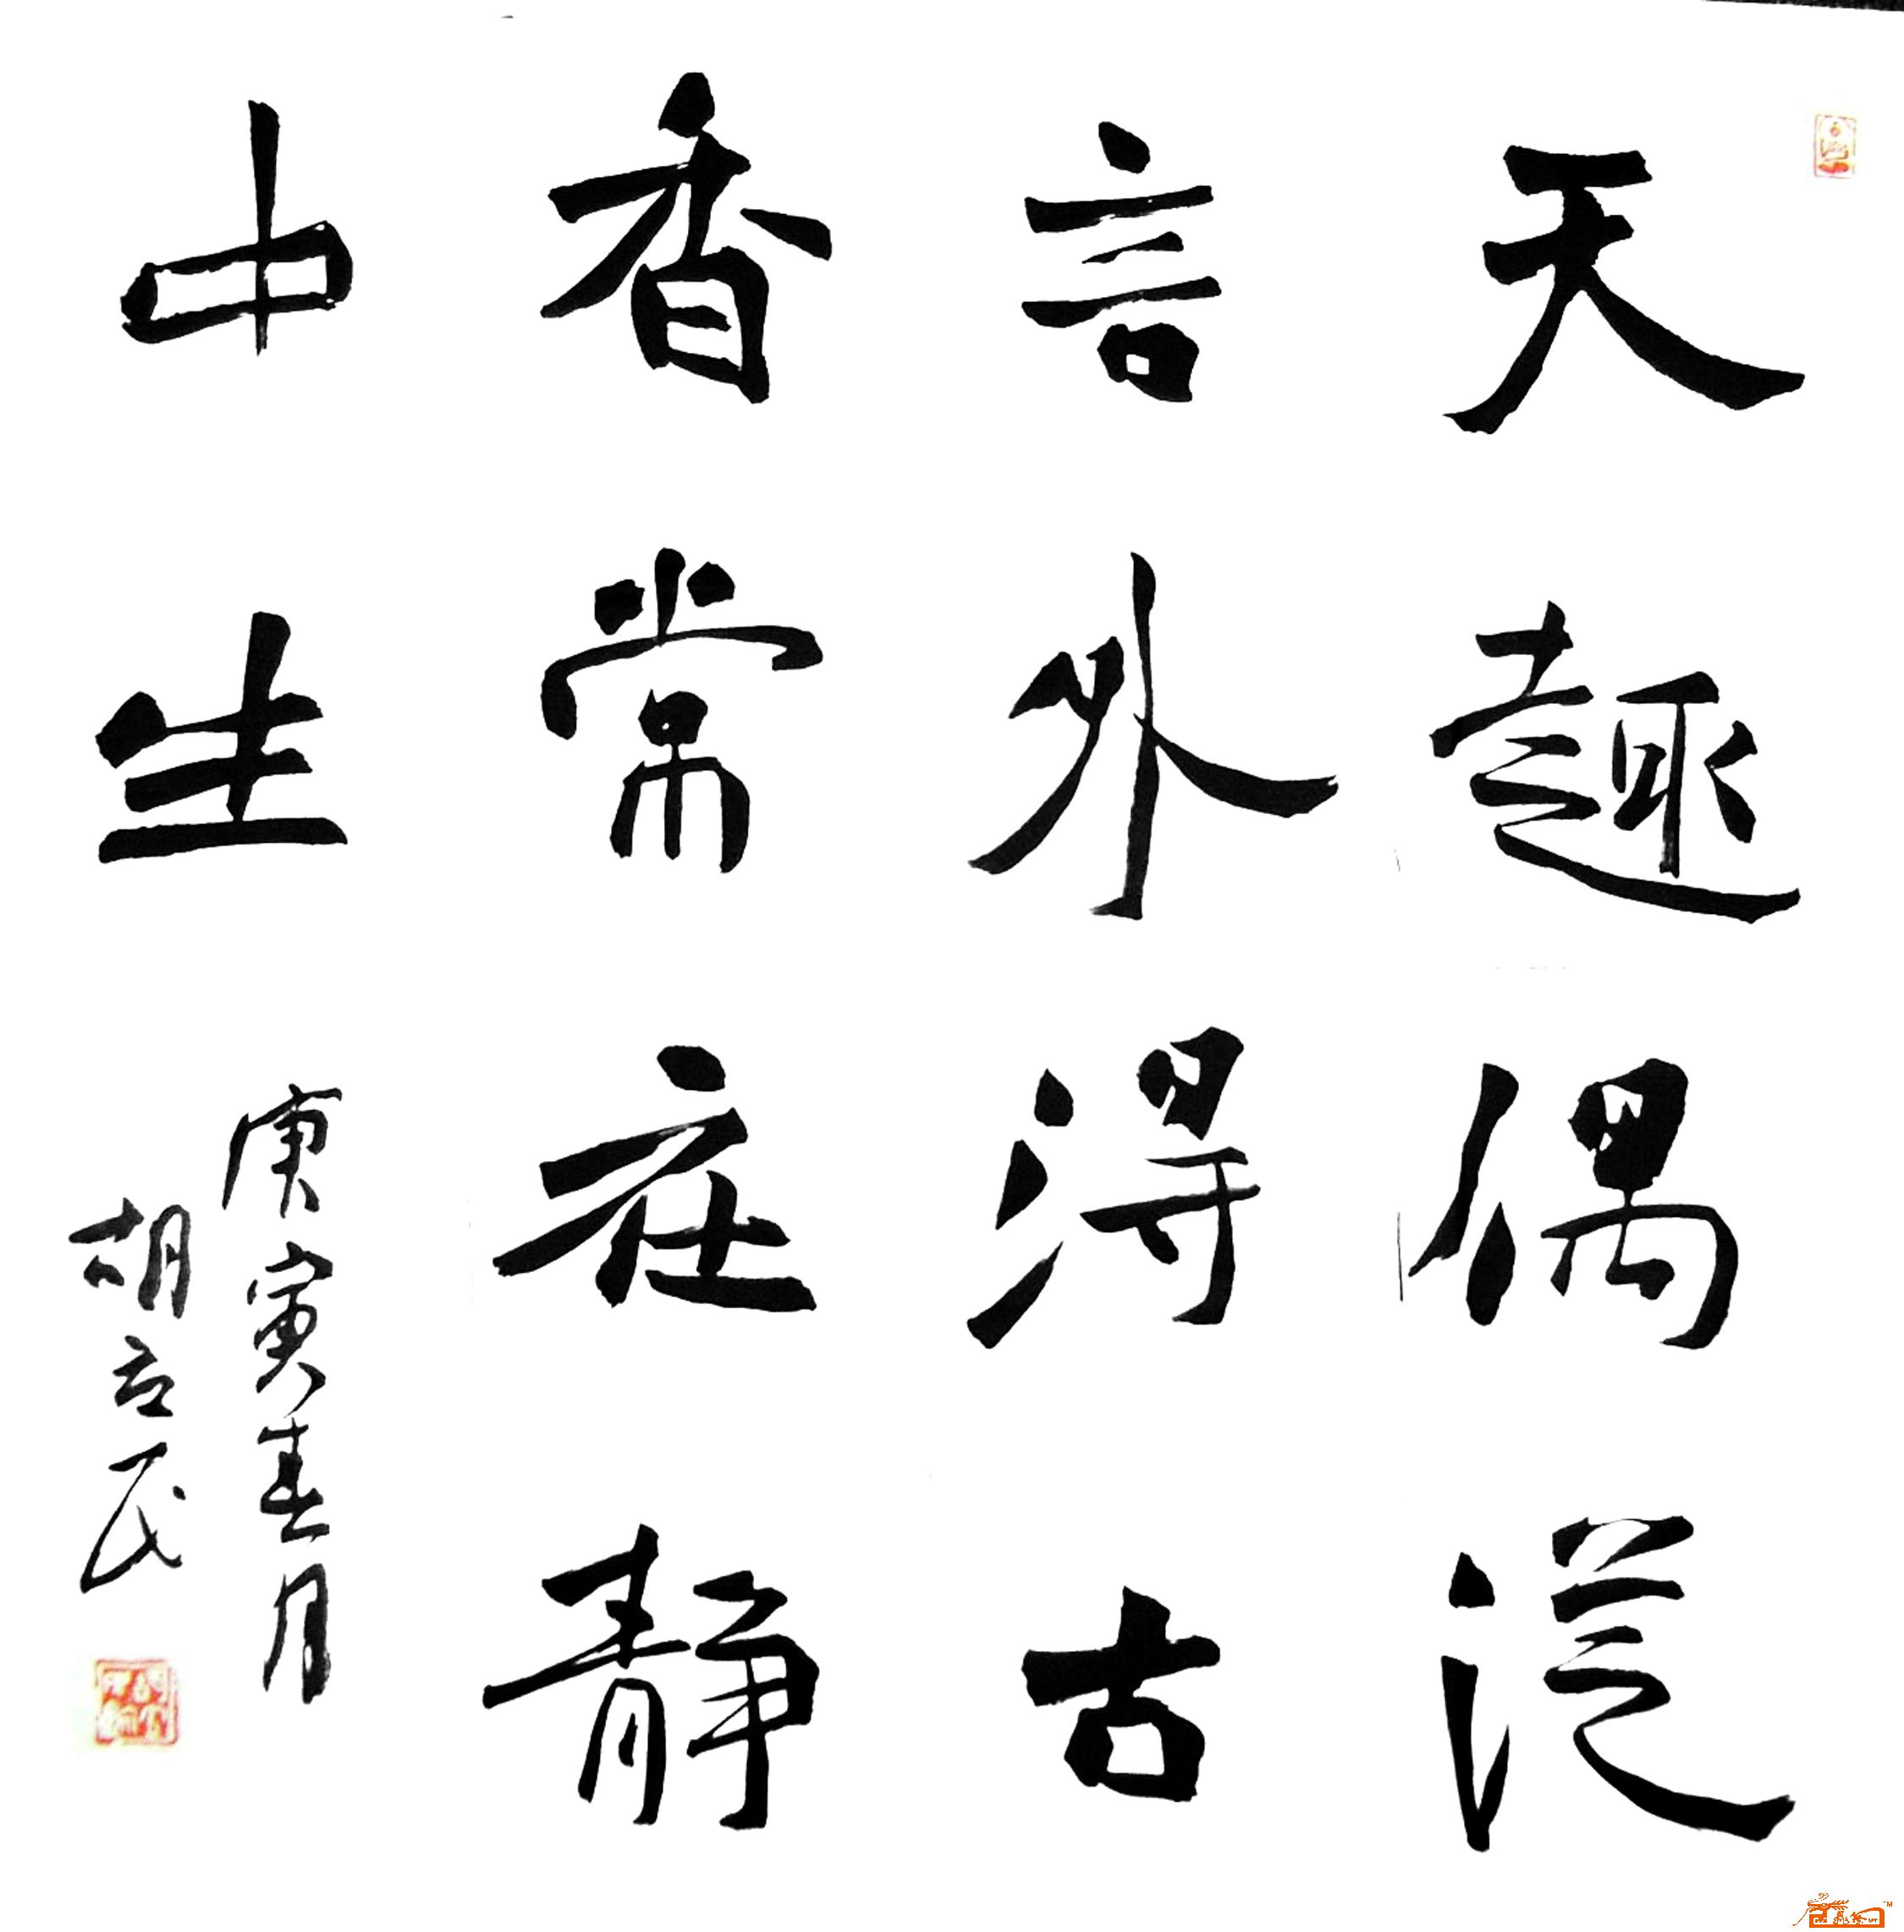 天趣偶從
言外得古
香常在静
中生
庚寅春月
胡立民